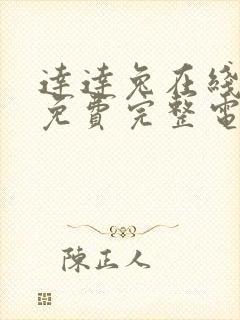 達達兔在綫
免費完整電
陳正人